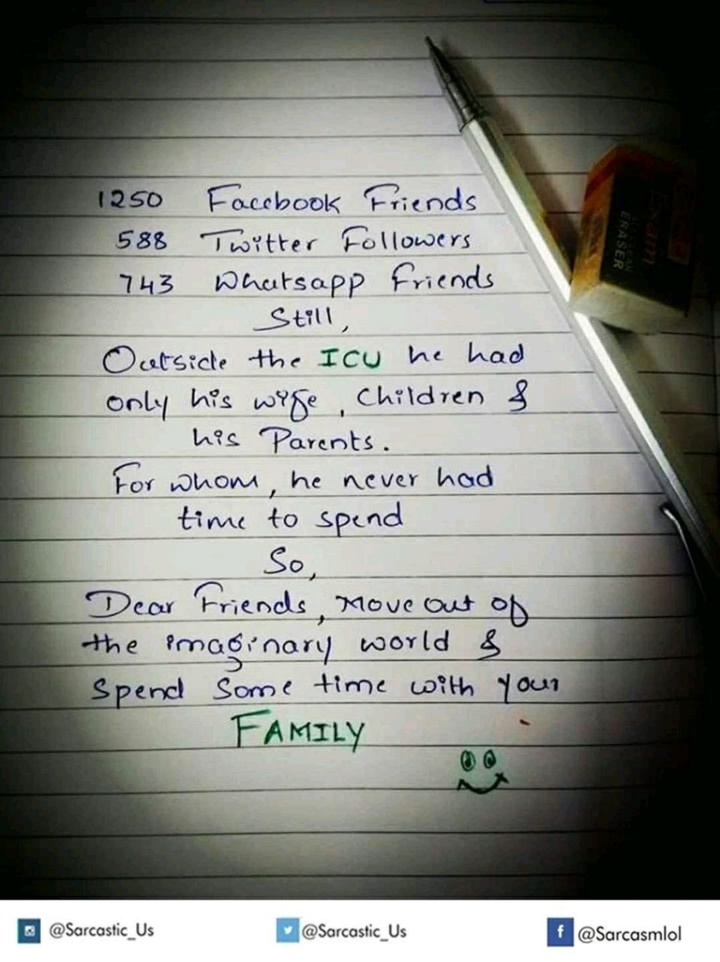 1250 Facebook Friends
588 Twitter Followers
743 Whatsapp Friends
Still,
Outside the ICU he had
only his wife, Children &
his Parents.
For whom, he never had
time to spend
So,
Dear Friends, Move out of
the imaginary world &
Spend Some time with your
FAMILY
Exam
ERASER
@Sarcastic_Us
@Sarcastic_Us
f @Sarcasmlol